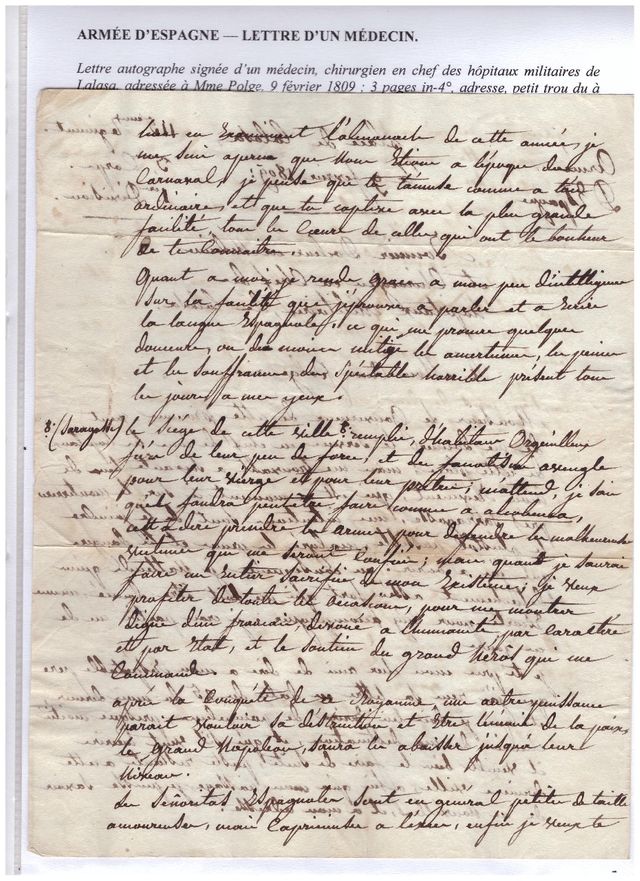 ARMÉE D'ESPAGNE — LETTRE D'UN MÉDECIN.
Lettre autographe signée d'un médecin, chirurgien en chef des hôpitaux militaires de
Lalasa, adressée à Mme Polge, 9 février 1809 : 3 pages in-4°, adresse, petit trou du à
hier en Examinant l'almanach de cette année, je
me suis aperçu que nous Etions a l'époque du
Carnaval, je pense que tu t'amuse comme a ton
ordinaire, et que tu captive avec la plus grande
facilité, tous les Cœurs de celles qui ont le bonheur
de te Connaitre.
Quant a moi je rends grace a mon peu d'intelligence
sur la facilité que j'éprouve a parler et a Ecrire
la langue Espagnole, ce qui me procure quelques
douceurs, ou du moins mitige les amertumes, les peines
et les souffrances, du spectable horrible présent tous
les jours a mes yeux.
8. (Saragosse) le siège de cette ville 8. remplie, d'habitans Orgeuilleux
fiers de leur peu de force, et du fanatisme aveugle
pour leur vierge et pour leurs prêtres; m'attend, je sais
qu'il faudra peut être faire comme a
c'est a dire prendre les armes pour deffendre les malheureuses
victimes qui me seront Confiés; mais quand je saurais
faire un Entier Sacrifice de mon Existence; je veux
profiter de toutes les occasions, pour me montrer
digne d'être francais, dévoué a l'humanité par caractère
et par Etat, et le soutien du grand Hérôs qui me
Commande.
après la Conquête de ce Royaume, une autre puissance
parait vouloir sa destruction et Etre Ennemi de la paix,
le Grand Napoleon, saura les abaisser jusqu'a leur
Niveau.
Les Señoritas Espagnoles sont en general petites de taille
amoureuses, mais Capricieuses a l'excès, enfin je veux te